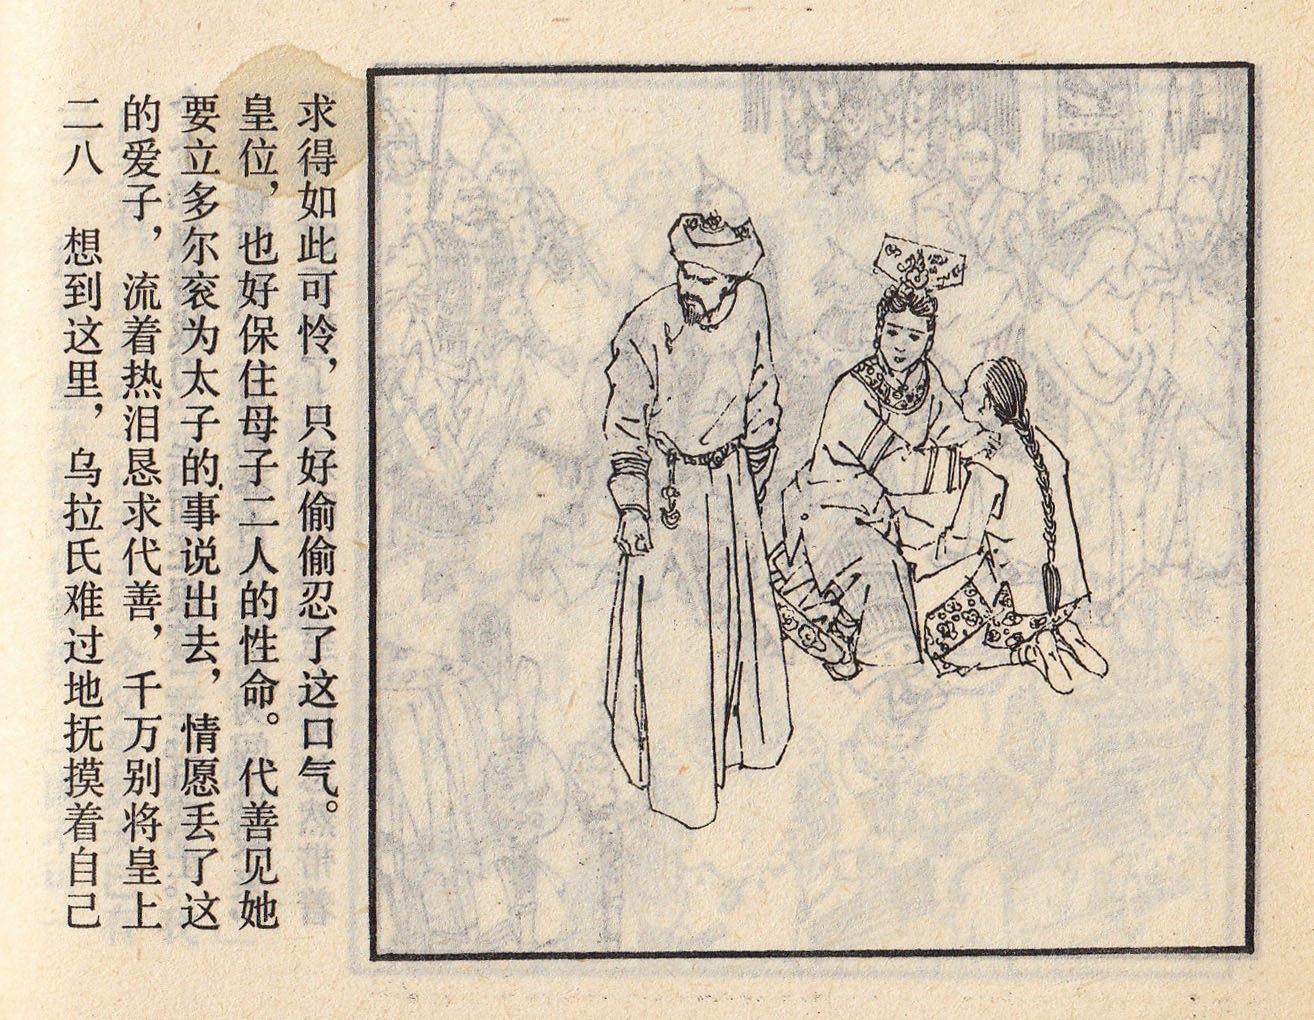 二八　想到这里，乌拉氏难过地抚摸着自己
的爱子，流着热泪恳求代善，千万别将皇上
要立多尔衮为太子的事说出去，情愿丢了这
皇位，也好保住母子二人的性命。代善见她
求得如此可怜，只好偷偷忍了这口气。